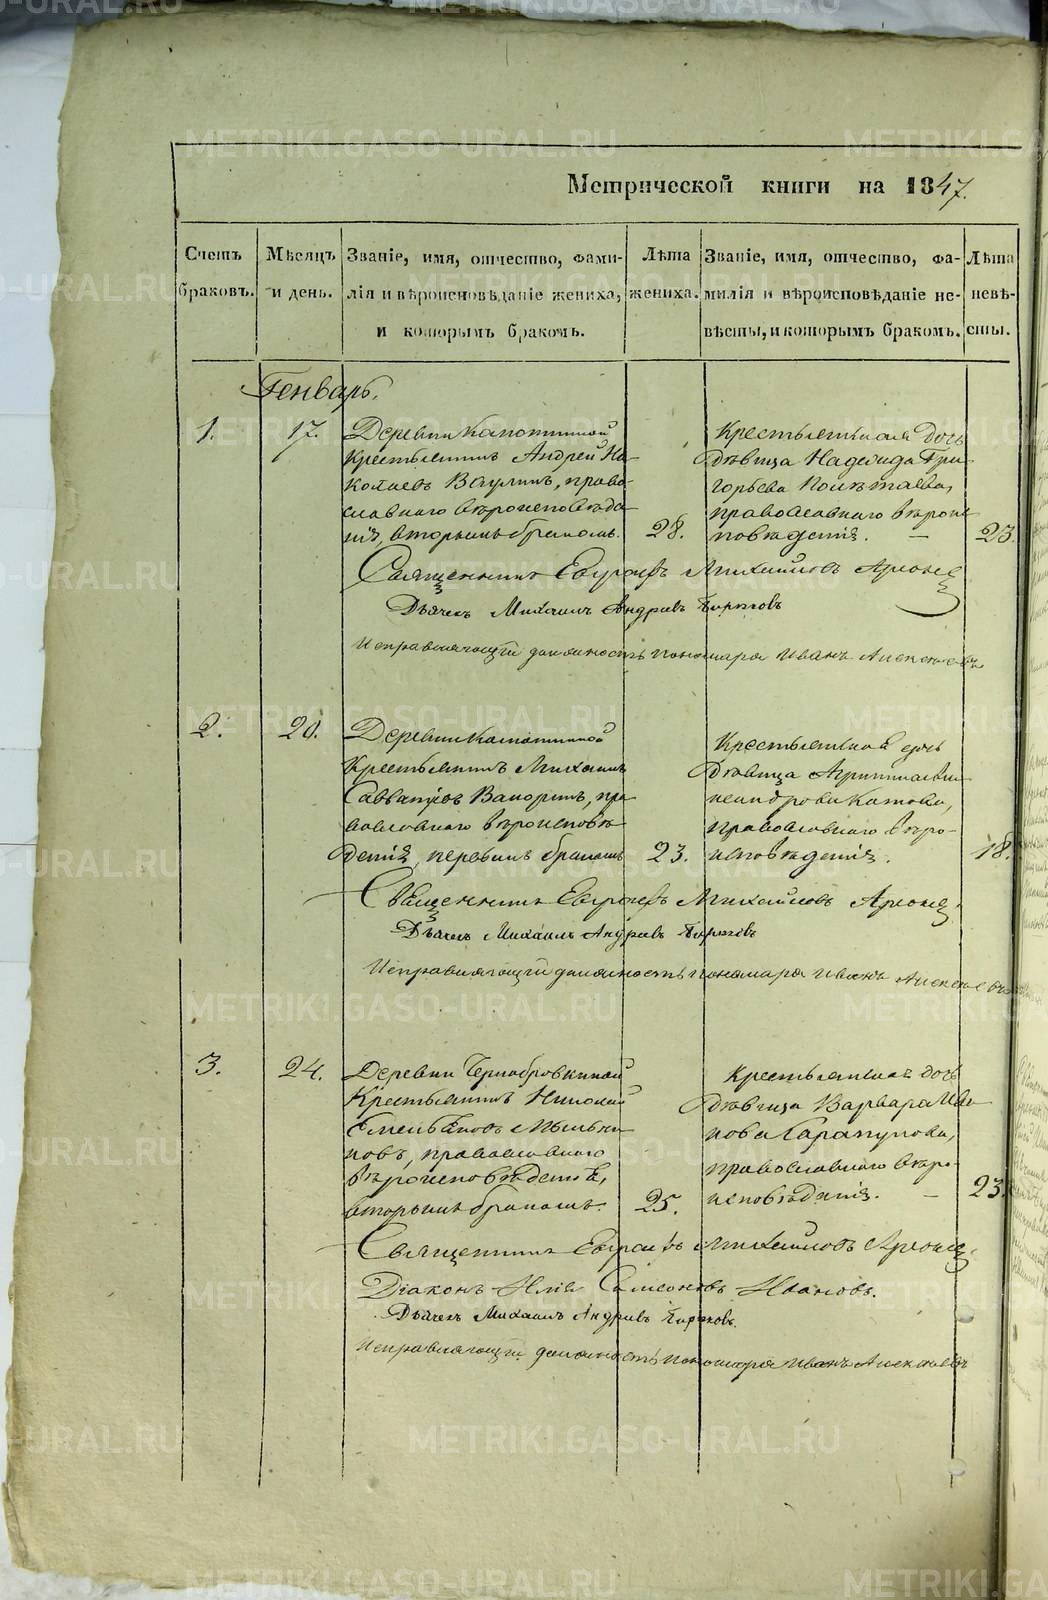 Метрической книги на 1847.
Счетъ браковъ.
Мѣсяцъ и день.
Званіе, имя, отчество, фами-
лія и вѣроисповѣданіе жениха,
и которымъ бракомъ.
Лѣта жениха.
Званіе, имя, отчество, фа-
милія и вѣроисповѣданіе не-
вѣсты, и которымъ бракомъ.
Лѣта невѣ-
сты.
Генварь.
1.
17.
Деревни Калотиной
Крестьянинъ Андрей Ни-
колаевъ Ваулинъ, право-
славнаго вѣроисповѣда-
нія, вторымъ бракомъ.
28.
Крестьянская дочь
дѣвица Надежда Гри-
горьева Полѣтаева,
православнаго вѣроис-
повѣданія. —
23.
Священникъ Евграфъ Михайловъ
Дьячекъ Михаилъ Андреевъ
Исправляющій должность пономаря Иванъ Алексѣевъ
2.
20.
Деревни Калотиной
Крестьянинъ Михаилъ
Савватѣевъ пра-
вославнаго вѣроисповѣ-
данія, первымъ бракомъ
23.
Крестьянская дочь
дѣвица Агрипина
Катова,
православнаго вѣро-
исповѣданія.
18.
Священникъ Евграфъ Михайловъ
Дьячекъ Михаилъ Андреевъ
Исправляющій должность пономаря Иванъ Алексѣевъ
3.
24.
Деревни Чернобровкиной
Крестьянинъ Николай
Емельяновъ Мыльни-
ковъ, православнаго
вѣроисповѣданія,
вторымъ бракомъ.
25.
Крестьянская дочь
дѣвица Варвара Ива-
нова Сарапулова,
православнаго вѣро-
исповѣданія. —
23.
Священникъ Евграфъ Михайловъ
Діаконъ Илія Симеоновъ Ивановъ.
Дьячекъ Михаилъ Андреевъ
Исправляющій должность пономаря Иванъ Алексѣевъ
METRIKI.GASO-URAL.RU